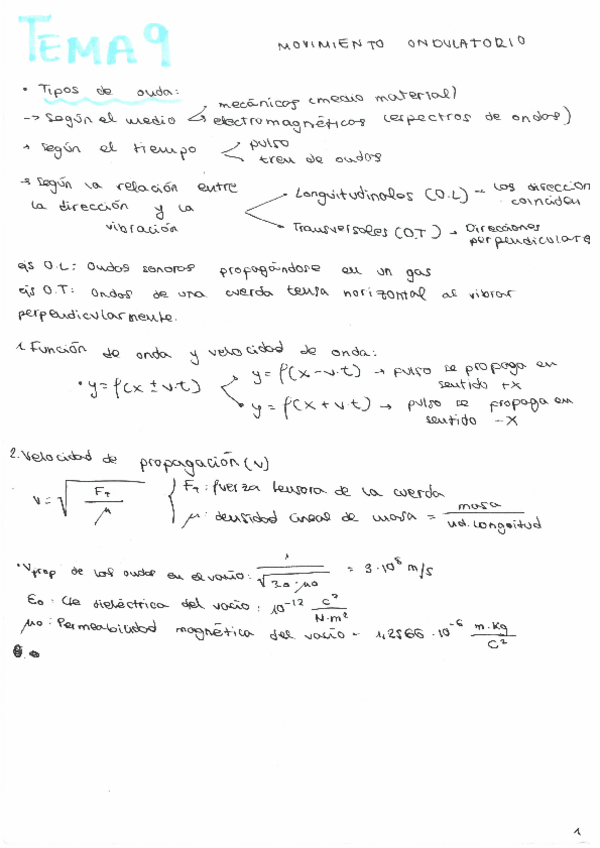 TEMA 9
MOVIMIENTO ONDULATORIO
• Tipos de onda:
-> Según el medio mecánicas (medio material)
electromagnéticas (espectros de ondas)
→ según el tiempo pulso
tren de ondas
→ según la relación entre
la dirección y la
vibración
Longuitudinales (O.L) → las dirección
coinciden
Transversales (O.T) → Direcciones
perpendiculares
ejs O.L: Ondas sonoras propagándose en un gas
ejs O.T: Ondas de una cuerda tensa horizontal al vibrar
perpendicularmente.
1. Función de onda y velocidad de onda:
• y = f(x ± v·t)
y = f(x - v·t) → pulso se propaga en
sentido +x
y = f(x + v·t) → pulso se propaga en
sentido -x
2. Velocidad de propagación (v)
v = √(FT / μ)
FT: fuerza tensora de la cuerda
μ: densidad lineal de masa = masa / ud. longitud
• Vprop de las ondas en el vacío: 1 / √(εo · μo) = 3·10⁸ m/s
εo: Cte dieléctrica del vacío: 10⁻¹² C² / N·m²
μo: Permeabilidad magnética del vacío - 1,2566 · 10⁻⁶ m·Kg / C²
1